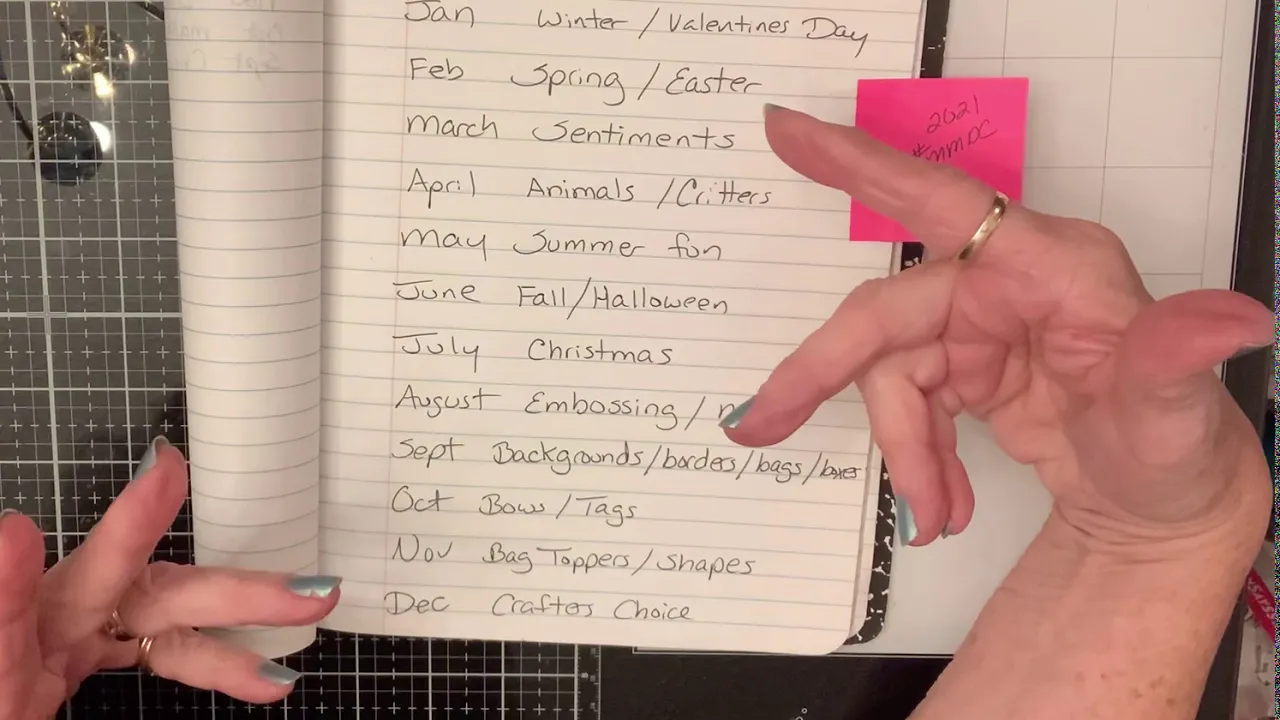 Jan Winter / Valentines Day
Feb Spring / Easter
March Sentiments
April Animals / Critters
May Summer fun
June Fall/Halloween
July Christmas
August Embossing /
Sept Backgrounds/borders/bags/boxes
Oct Bows / Tags
Nov Bag Toppers / Shapes
Dec Crafters Choice
2021
#mmDC